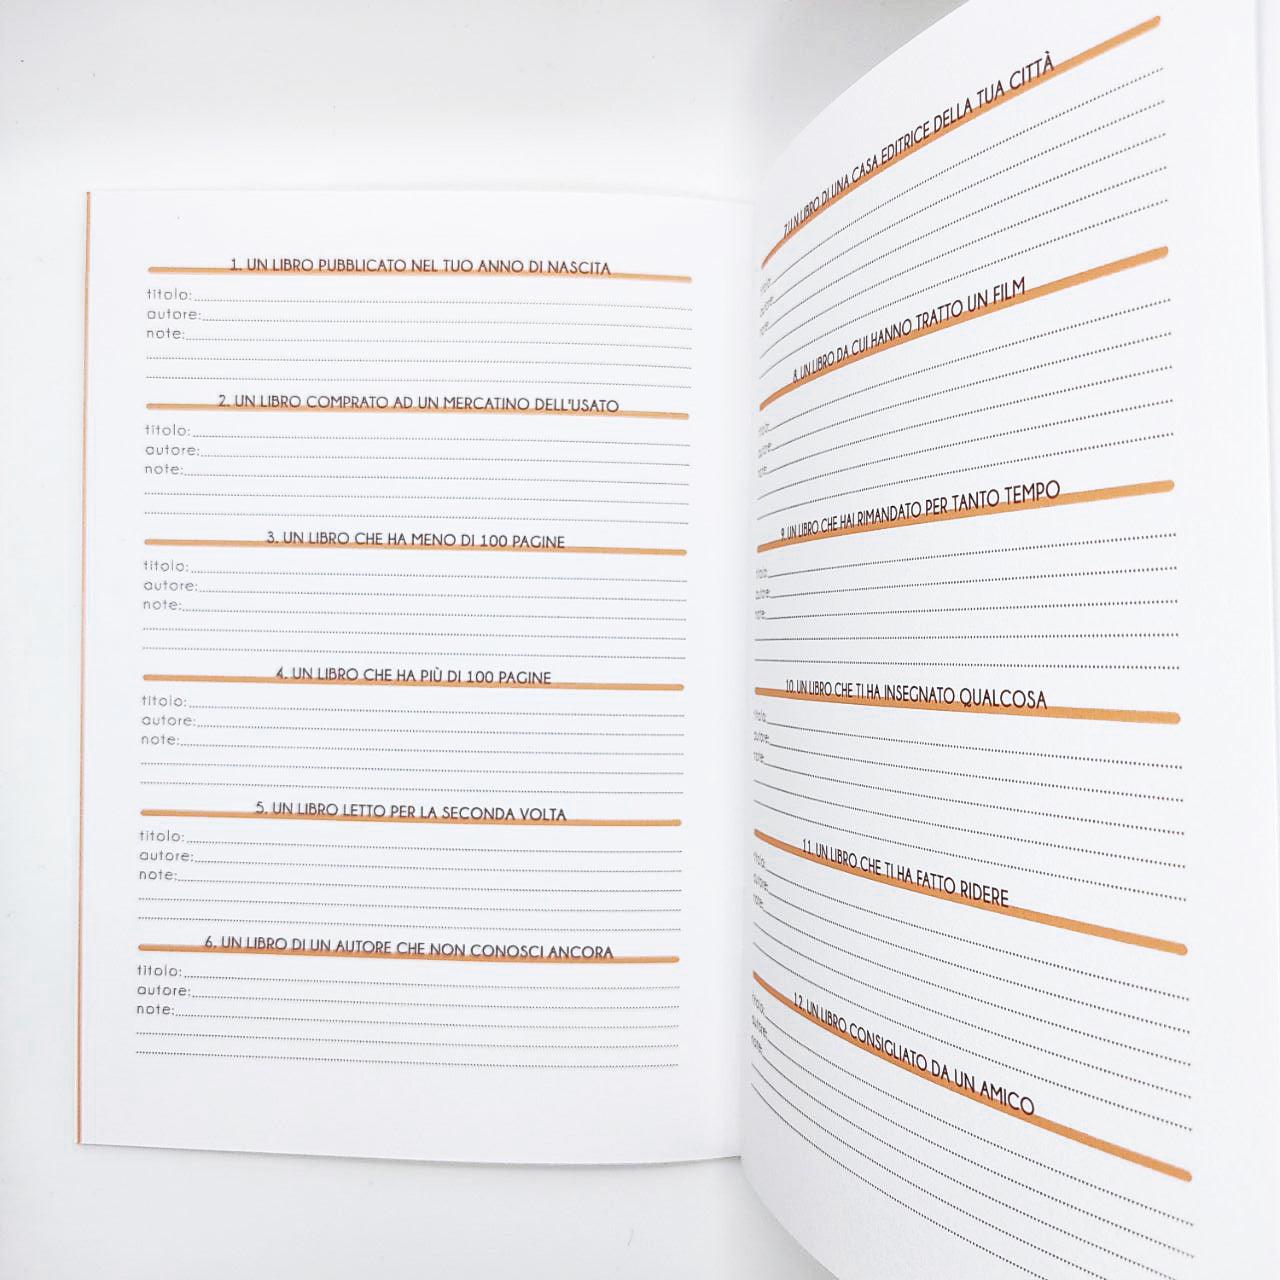 1. UN LIBRO PUBBLICATO NEL TUO ANNO DI NASCITA
titolo:
autore:
note:
2. UN LIBRO COMPRATO AD UN MERCATINO DELL'USATO
titolo:
autore:
note:
3. UN LIBRO CHE HA MENO DI 100 PAGINE
titolo:
autore:
note:
4. UN LIBRO CHE HA PIÙ DI 100 PAGINE
titolo:
autore:
note:
5. UN LIBRO LETTO PER LA SECONDA VOLTA
titolo:
autore:
note:
6. UN LIBRO DI UN AUTORE CHE NON CONOSCI ANCORA
titolo:
autore:
note:
7. UN LIBRO DI UNA CASA EDITRICE DELLA TUA CITTÀ
titolo:
autore:
note:
8. UN LIBRO DA CUI HANNO TRATTO UN FILM
titolo:
autore:
note:
9. UN LIBRO CHE HAI RIMANDATO PER TANTO TEMPO
titolo:
autore:
note:
10. UN LIBRO CHE TI HA INSEGNATO QUALCOSA
titolo:
autore:
note:
11. UN LIBRO CHE TI HA FATTO RIDERE
titolo:
autore:
note:
12. UN LIBRO CONSIGLIATO DA UN AMICO
titolo:
autore:
note: